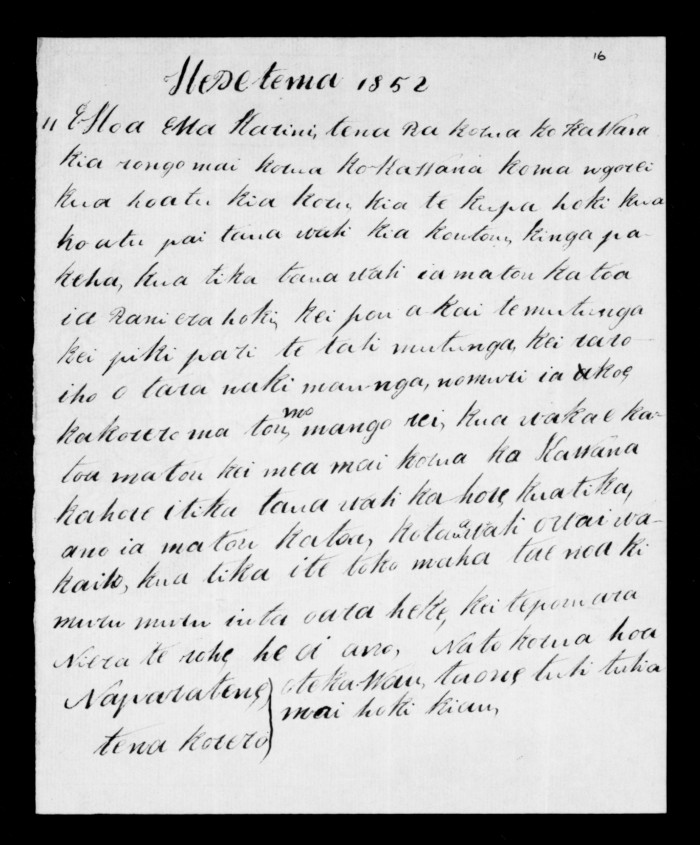 16
Hepetema 1852
11 E Hoa e Ma Karini, tena Ra korua ko Kawana
kia rongo mai korua ko Kawana koma ngorei
kua hoatu kia koru, kia te kupa hoki kua
hoatu pai tana wati kia koutou, kinga pa-
keha, kua tika tana wati ia matou katoa
ia Raniera hoki, kei pou a kai te mutunga
kei piki pari te tahi mutunga, kei raro
iho o tara naki maunga, nomuri ia koe,
kakorero ma tou, mo mango rei, kua wakae ka-
toa matou kei mea mai korua ka Kawana
kahore i tika tana wati kahore, kua tika,
ano ia matou katoa, kotana wati owai wa-
kaiko, kua tika i te toko maha tae noa ki
muru muru iuta oara heke, kei te pou ara
Niera te rohe he oi ano, Nato korua hoa
Naparatene, otekawau, tuone tuhi tuhia
mai hoki kiau,
tena korero